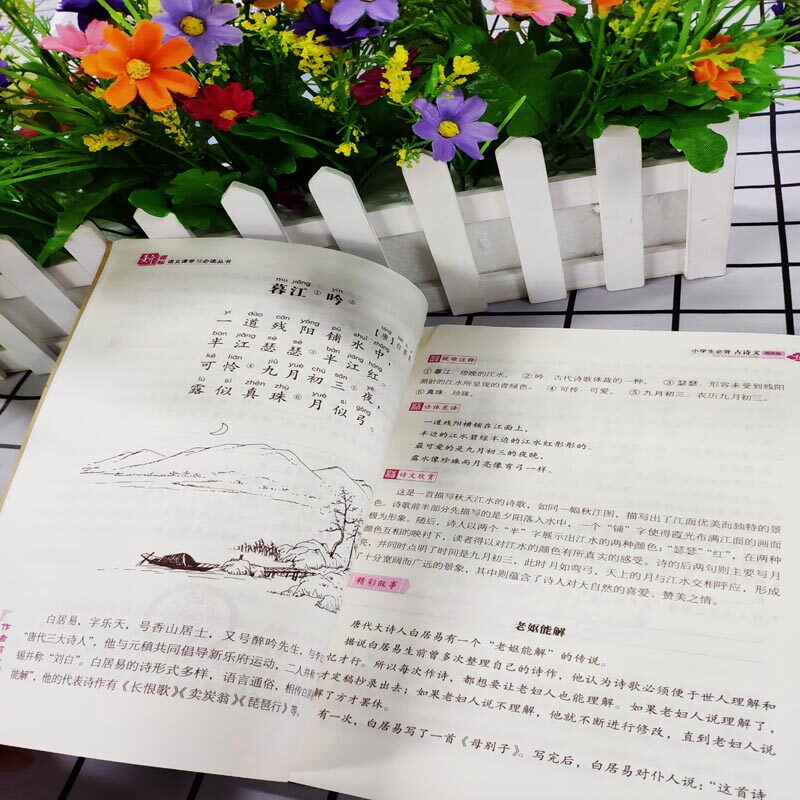 新课标 语文课学习必读丛书
mù jiāng yín
暮江①吟②
【唐】白居易
yí dào cán yáng pū shuǐ zhōng
一道残阳铺水中，
bàn jiāng sè sè bàn jiāng hóng
半江瑟瑟③半江红。
kě lián jiǔ yuè chū sān yè
可怜④九月初三⑤夜，
lù sì zhēn zhū yuè sì gōng
露似真珠⑥月似弓。
白居易，字乐天，号香山居士，又号醉吟先生，与李
“唐代三大诗人”，他与元稹共同倡导新乐府运动，二人并称
锡并称“刘白”。白居易的诗形式多样，语言通俗，相传白
能解”，他的代表诗作有《长恨歌》《卖炭翁》《琵琶行》等。
小学生必背 古诗文
疑难注释
①暮江：傍晚的江水。 ②吟：古代诗歌体裁的一种。 ③瑟瑟：形容未受到残阳
照射的江水所呈现的青绿色。 ④可怜：可爱。 ⑤九月初三：农历九月初三。
⑥真珠：珍珠。
语体意译
一道残阳横铺在江面上，
半边的江水碧绿半边的江水红彤彤的。
最可爱的是九月初三的夜晚，
露水像珍珠而月亮像弯弓一样。
诗文欣赏
这是一首描写秋天江水的诗歌，如同一幅秋江图，描写出了江面优美而独特的景
色。诗歌前半部分先描写的是夕阳落入水中，一个“铺”字使得霞光布满江面的画面
极为形象。随后，诗人以两个“半”字展示出江水的两种颜色：“瑟瑟”“红”，在两种
颜色互相的映衬下，读者得以对江水的颜色有所真实的感受。诗的后两句则主要写月
亮，并同时点明了时间是九月初三，此时月如弯弓，天上的月与江水交相呼应，形成
十分宽阔而广远的景象，其中则蕴含了诗人对大自然的喜爱、赞美之情。
精彩故事
老妪能解
唐代大诗人白居易有一个“老妪能解”的传说。
据说白居易生前曾多次整理自己的诗作，他认为诗歌必须便于世人理解和
忆才行。所以每次作诗，都想要让老妇人也能理解。如果老妇人说理解了，
才定稿抄录出去；如果老妇人说不理解，他就不断进行修改，直到老妇人说
解了方才罢休。
有一次，白居易写了一首《母别子》。写完后，白居易对仆人说：“这首诗